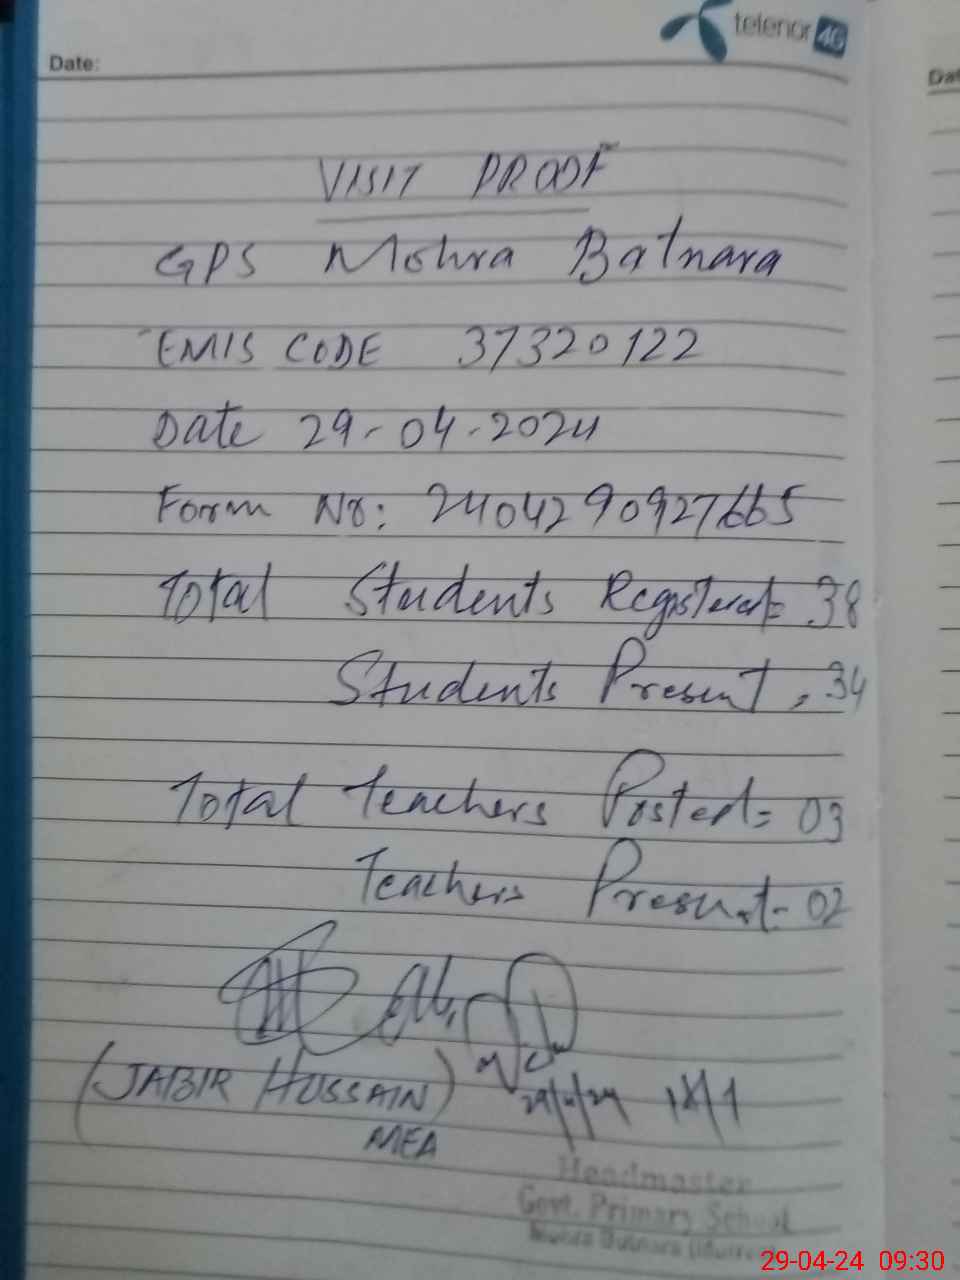 telenor 4G
Date:
Dat
VISIT PROOF
GPS Mohra Batnara
EMIS CODE 37320122
Date 29-04-2024
Form No: 2404290927665
Total Students Registered = 38
Students Present = 34
Total Teachers Posted = 03
Teachers Present - 02
(JABIR HUSSAIN)
MEA
29/4/24
Headmaster
Govt. Primary School
Mohra Batnara (Murree)
29-04-24 09:30